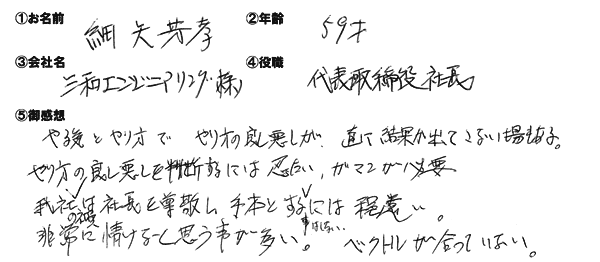 ①お名前 細矢芳孝 ②年齢 59才
③会社名 三和エンジニアリング(株) ④役職 代表取締役社長
⑤御感想
やる気とやり方で やり方の良し悪しが、直に結果が出てこない場もある。
やり方の良し悪しを判断するには忍耐、ガマンが必要
我社の役員は社長を尊敬し、手本とするには程遠い。
非常に情けないと思う事が多い。 ベクトルが合っていない。